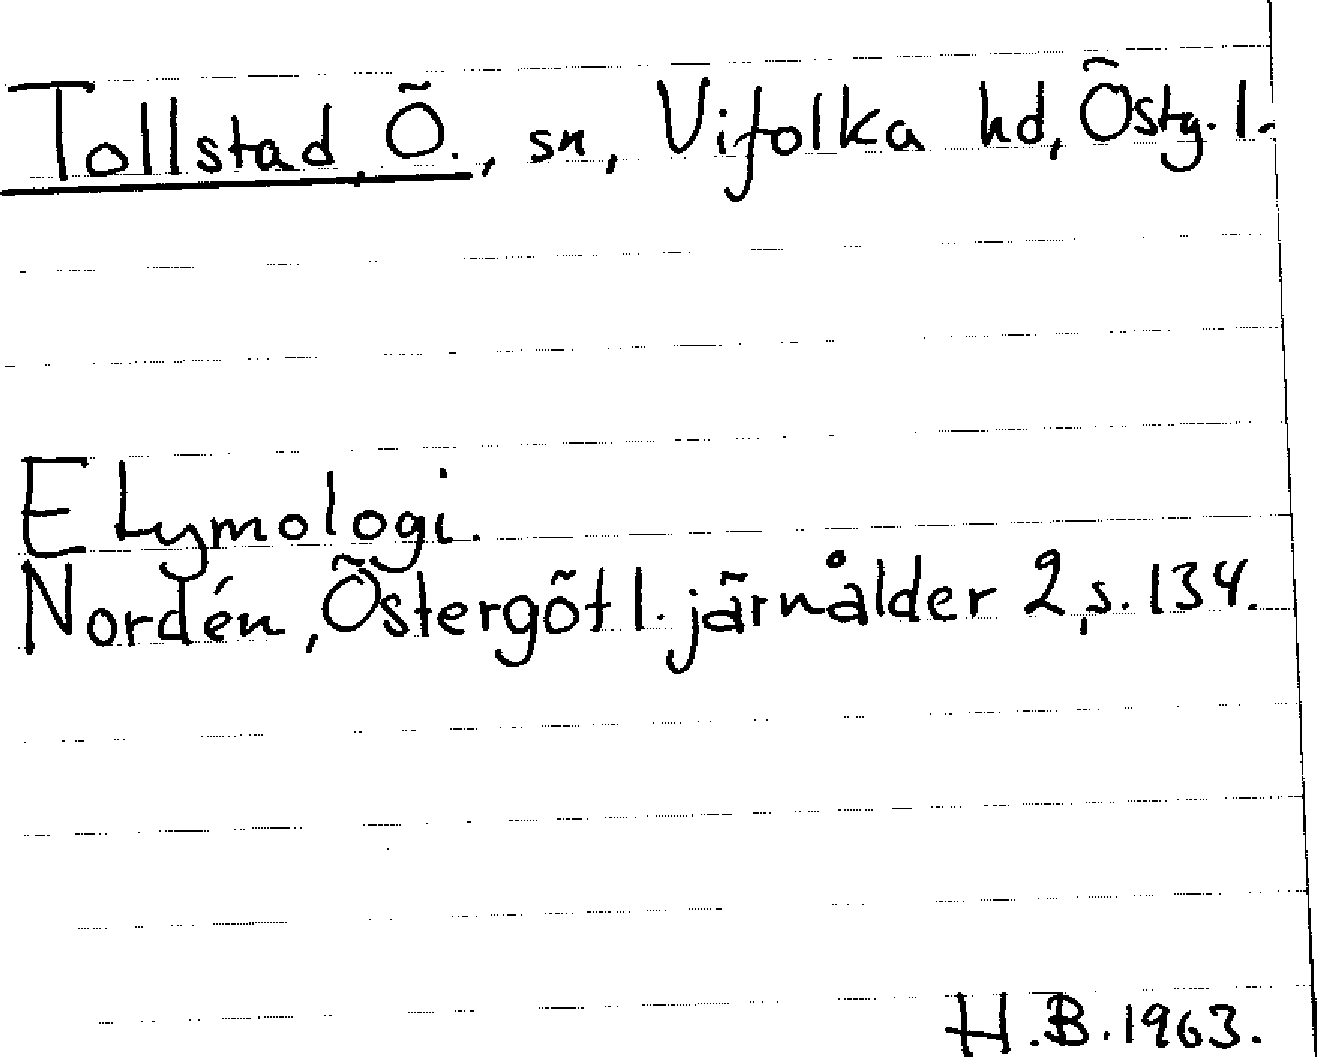 Tollstad, Ö., sn, Vifolka hd, Östg. l.
Etymologi.
Nordén, Östergötl. järnålder 2, s. 134.
H.B. 1963.